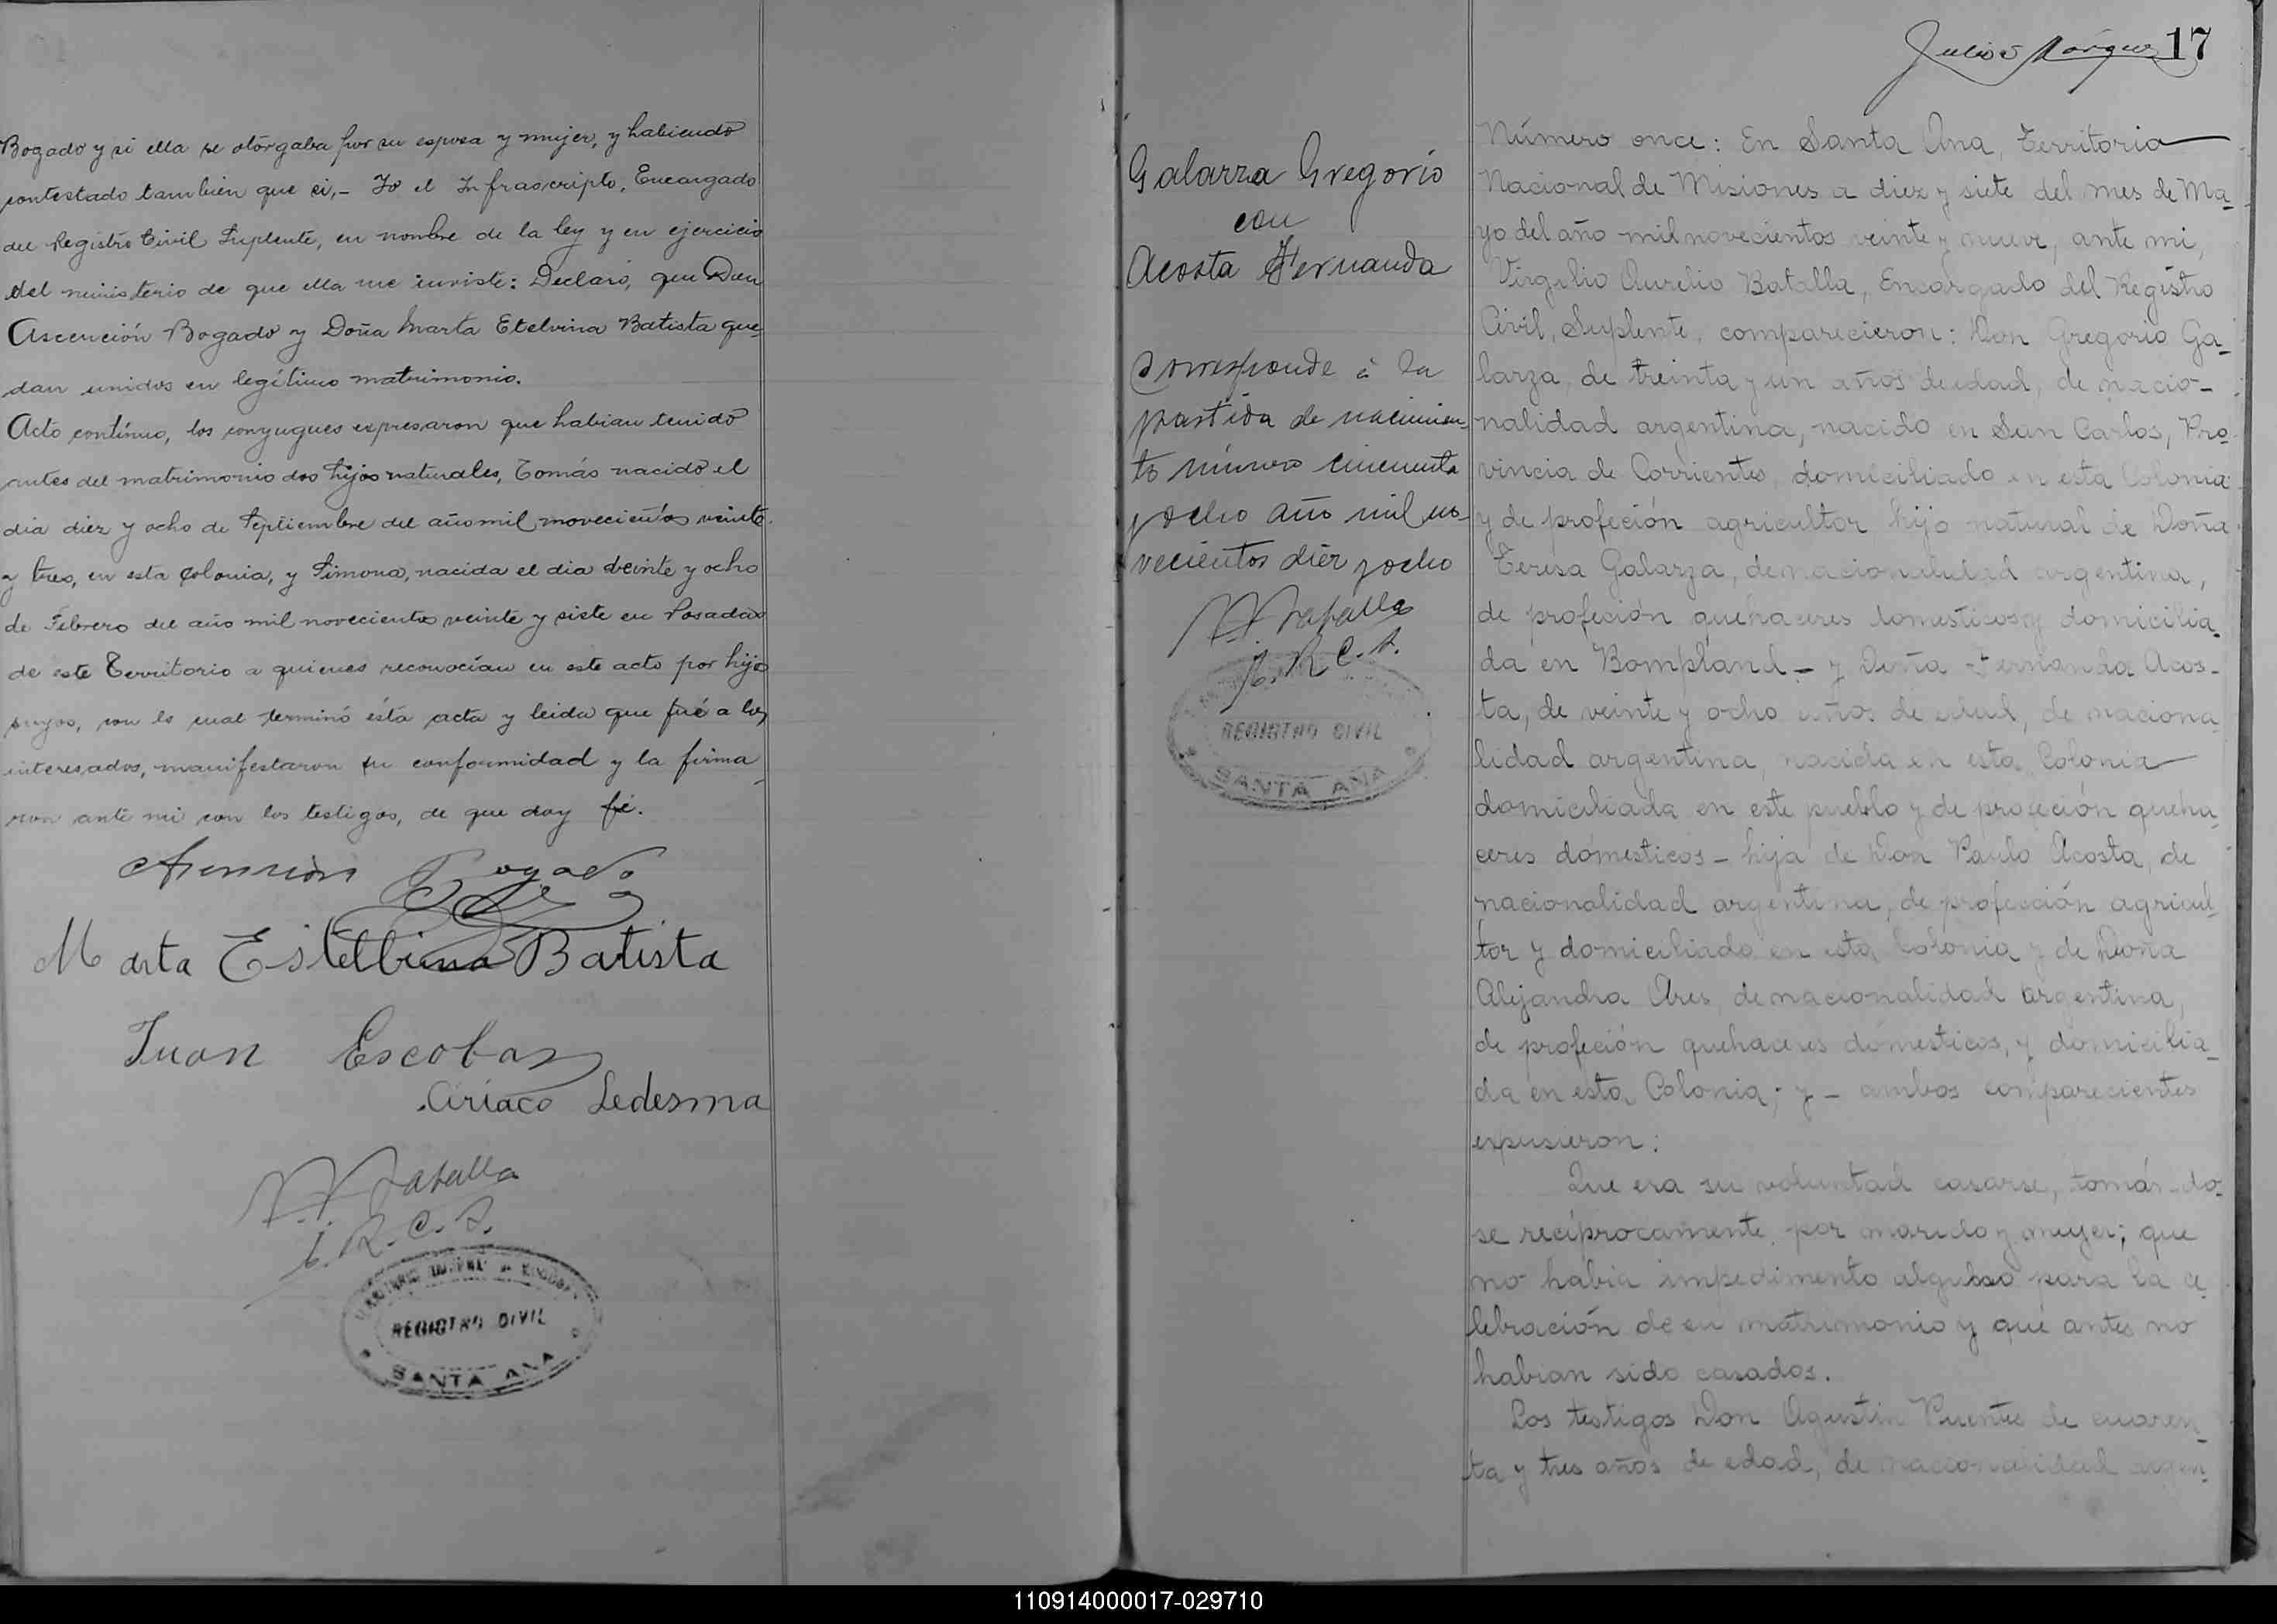 Bogado y si ella se otorgaba por su esposa y mujer, y habiendo
contestado tambien que si,- Yo el Infrascripto, Encargado
del Registro Civil Suplente, en nombre de la ley y en ejercicio
del ministerio de que ella me inviste: Declaro, que Don
Ascención Bogado y Doña Marta Etelvina Batista que-
dan unidos en legítimo matrimonio.
Acto contínuo, los conyugues expresaron que habian tenido
antes del matrimonio dos hijos naturales, Tomás nacido el
dia diez y ocho de Septiembre del año mil novecientos veinte
y tres, en esta Colonia, y Simona, nacida el dia veinte y ocho
de Febrero del año mil novecientos veinte y siete en Posadas
de este Territorio a quienes reconocían en este acto por hijos
suyos, con lo cual terminó ésta acta y leida que fué a los
interesados, manifestaron su conformidad y la firma-
ron ante mi con los testigos, de que doy fé.
Asención Bogado
Marta Estelbina Batista
Juan Escobar
Ciriaco Ledesma
V. A. Batalla
E. R. C. S.
REGISTRO CIVIL
SANTA ANA
Galarza Gregorio
con
Acosta Fernanda
Corresponde à la
partida de nacimien-
to número cincuenta
y ocho año mil no-
vecientos diez y ocho
V. A. Batalla
E. R. C. S.
REGISTRO CIVIL
SANTA ANA
Julio Márquez 17
Número once: En Santa Ana, Territorio
Nacional de Misiones a diez y siete del mes de Ma-
yo del año mil novecientos veinte y nueve, ante mi,
Virgilio Aurelio Batalla, Encargado del Registro
Civil, Suplente, comparecieron: Don Gregorio Ga-
larza, de treinta y un años de edad, de nacio-
nalidad argentina, nacido en San Carlos, Pro-
vincia de Corrientes, domiciliado en esta Colonia
y de profeción agricultor hijo natural de Doña
Teresa Galarza, de nacionalidad argentina,
de profeción quehaceres domesticos y domicilia-
da en Bompland - y Doña Fernanda Acos-
ta, de veinte y ocho años de edad, de naciona-
lidad argentina, nacida en esta Colonia
domiciliada en este pueblo y de profeción queha-
ceres domésticos - hija de Don Paulo Acosta, de
nacionalidad argentina, de profección agricul-
tor y domiciliado en esta Colonia y de Doña
Alejandra Ares, de nacionalidad argentina,
de profeción quehaceres domésticos, y domicilia-
da en esta Colonia; y - ambos comparecientes
expusieron:
Que era su voluntad casarse, tomándo-
se recíprocamente por marido y mujer; que
no habia impedimento alguno para la ce-
lebración de su matrimonio y que antes no
habian sido casados.
Los testigos Don Agustin Puentes de cuaren-
ta y tres años de edad, de nacionalidad argen-
110914000017-029710